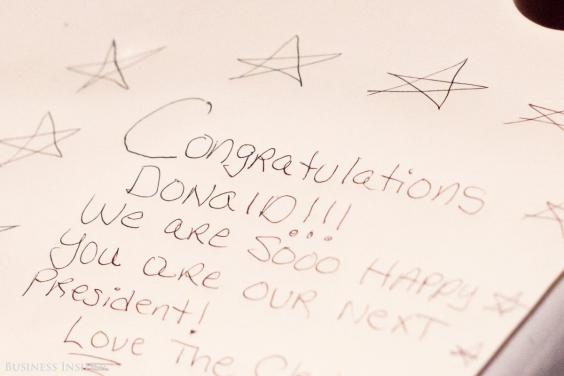 Congratulations
DONALD!!!
We are Sooo HAPPY
you are our Next
President!
Love The
BUSINESS INSIDER